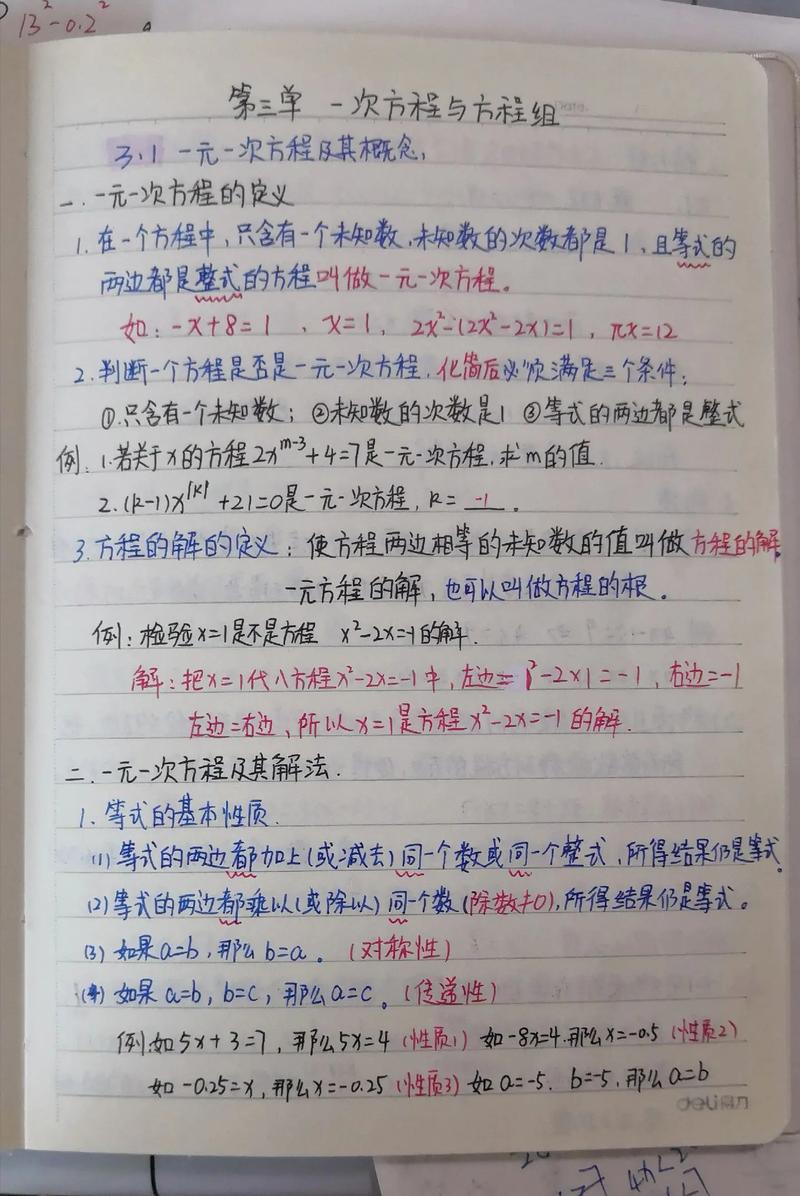 13²-0.2²
第三单 一次方程与方程组
3.1 一元一次方程及其概念,
一. 一元一次方程的定义
1. 在一个方程中,只含有一个未知数,未知数的次数都是1,且等式的
两边都是整式的方程叫做一元一次方程。
如: -x+8=1 、x=1, 2x²-(2x²-2x)=1, πx=12
2.判断一个方程是否是一元一次方程,化简后必须满足三个条件;
①只含有一个未知数; ②未知数的次数是1 ③等式的两边都是整式
例: 1.若关于x的方程2x^{m-3}+4=7是一元一次方程,求m的值.
2.(k-1)x^{|k|}+21=0是一元一次方程, k= -1 .
3.方程的解的定义: 使方程两边相等的未知数的值叫做方程的解,
一元方程的解,也可以叫做方程的根。
例: 检验x=1是不是方程 x²-2x=-1的解.
解: 把x=1代入方程x²-2x=-1中,左边=1²-2×1=-1,右边=-1
左边=右边,所以x=1是方程x²-2x=-1的解.
二.一元一次方程及其解法.
1. 等式的基本性质.
(1) 等式的两边都加上(或减去)同一个数或同一个整式,所得结果仍是等式。
(2)等式的两边都乘以(或除以)同一个数(除数≠0),所得结果仍是等式。
(3) 如果a=b,那么b=a。(对称性)
(4) 如果a=b, b=c, 那么a=c。(传递性)
例:如5x+3=7, 那么5x=4 (性质1) 如-8x=4.那么x=-0.5 (性质2)
如 -0.25=x, 那么x=-0.25 (性质3) 如 a=-5. b=-5, 那么a=b
deli得力